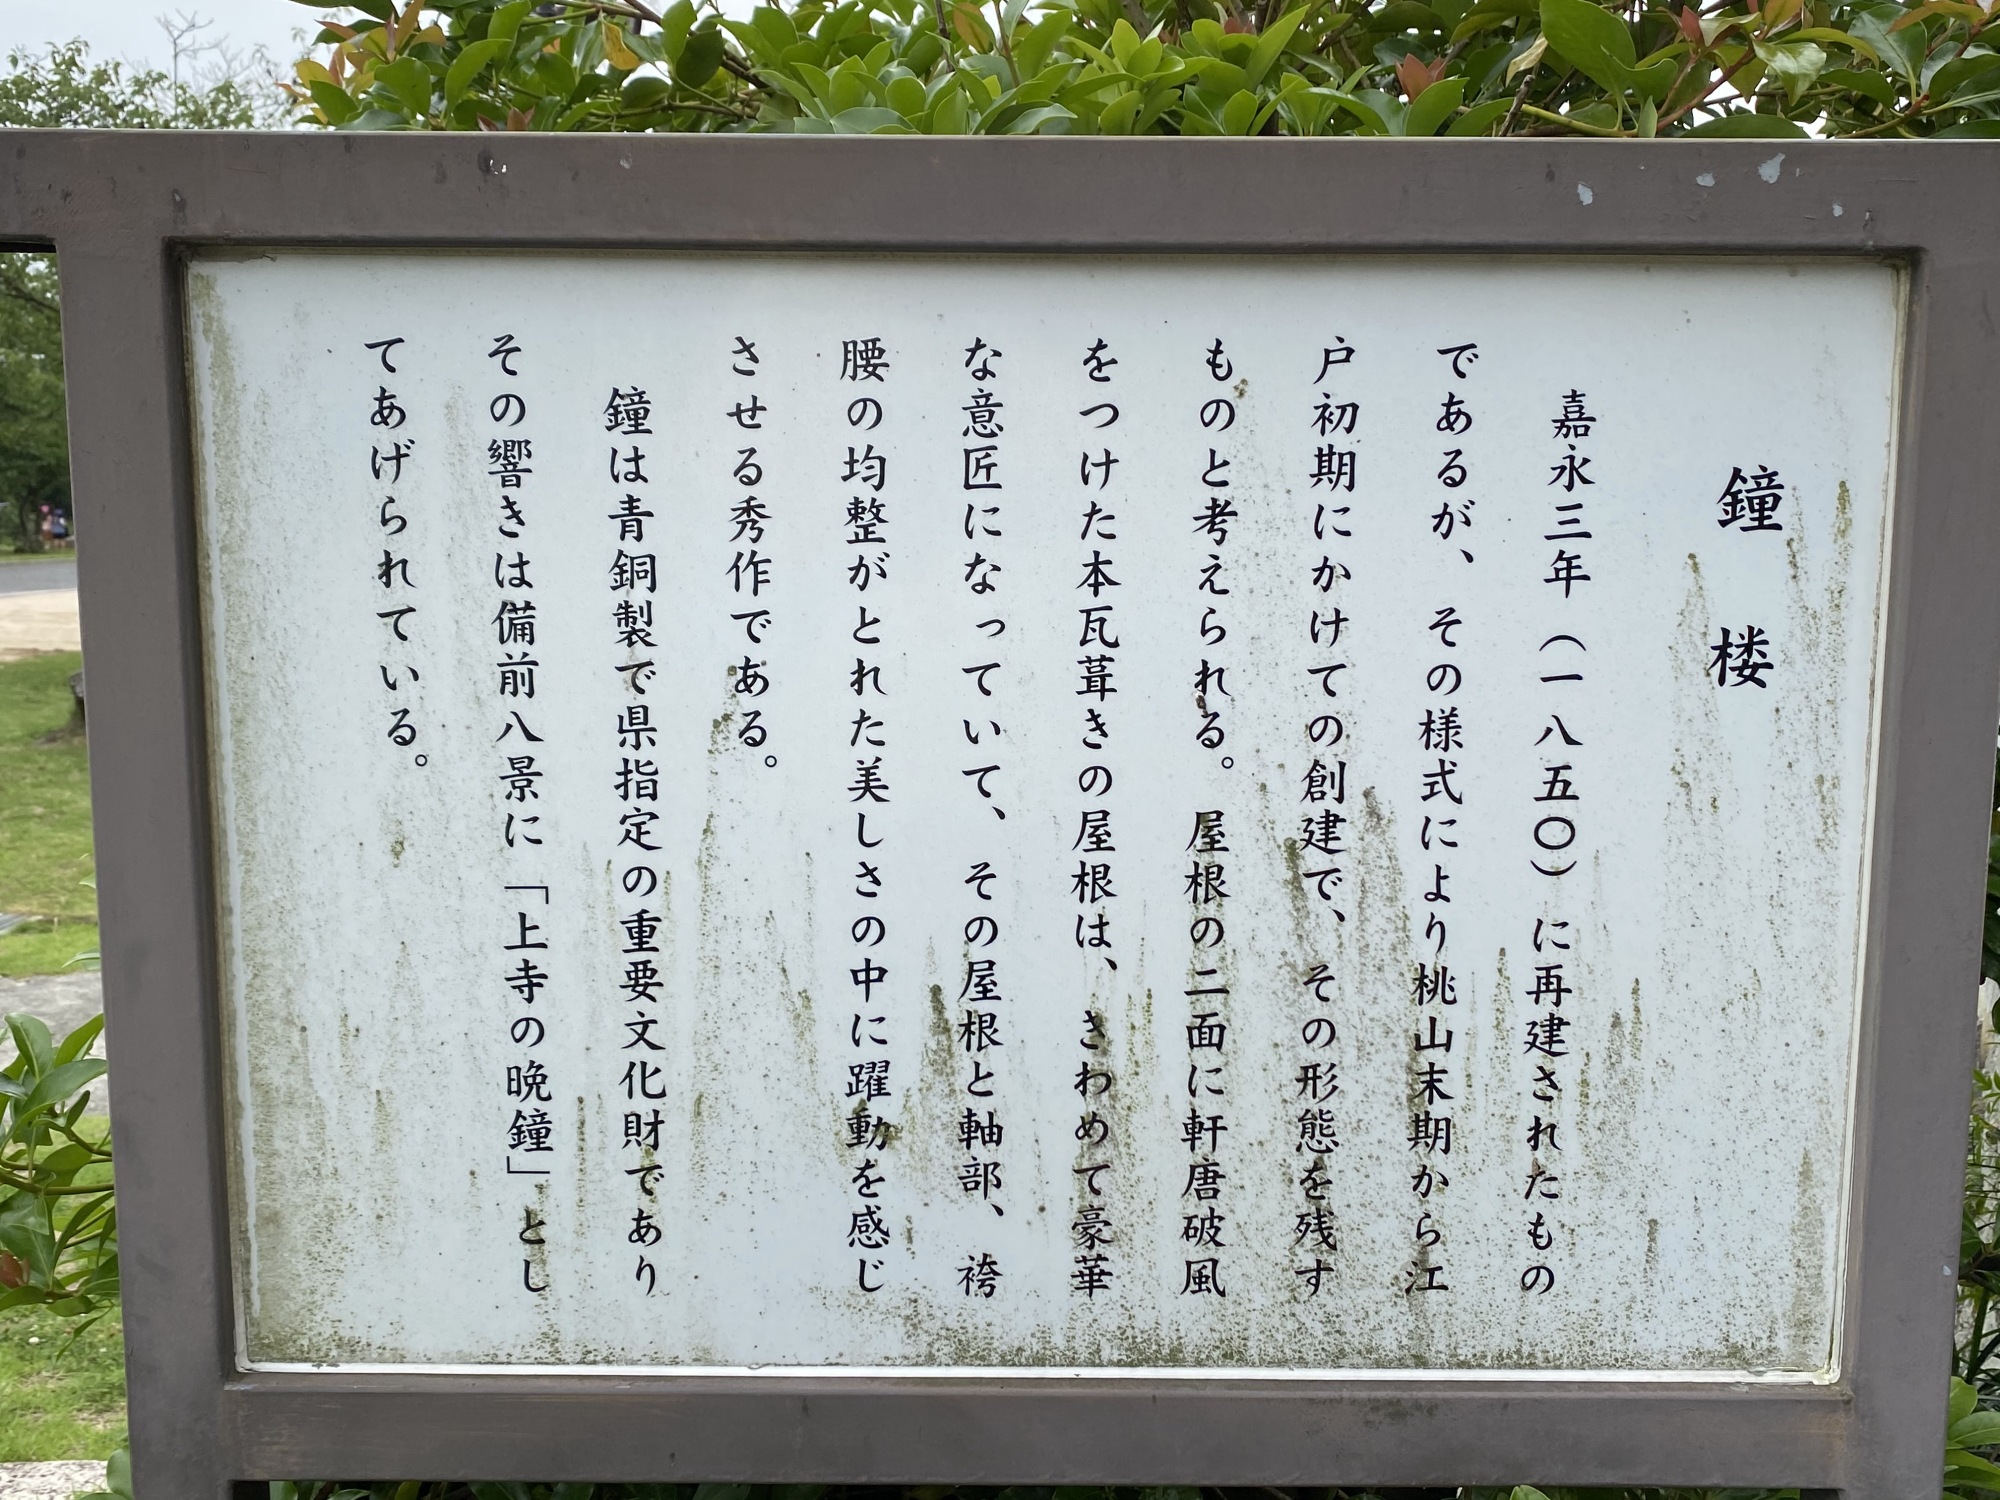 鐘楼
嘉永三年（一八五〇）に再建されたもの
であるが、その様式により桃山末期から江
戸初期にかけての創建で、その形態を残す
ものと考えられる。屋根の二面に軒唐破風
をつけた本瓦葺きの屋根は、きわめて豪華
な意匠になっていて、その屋根と軸部、袴
腰の均整がとれた美しさの中に躍動を感じ
させる秀作である。
鐘は青銅製で県指定の重要文化財であり
その響きは備前八景に「上寺の晩鐘」とし
てあげられている。